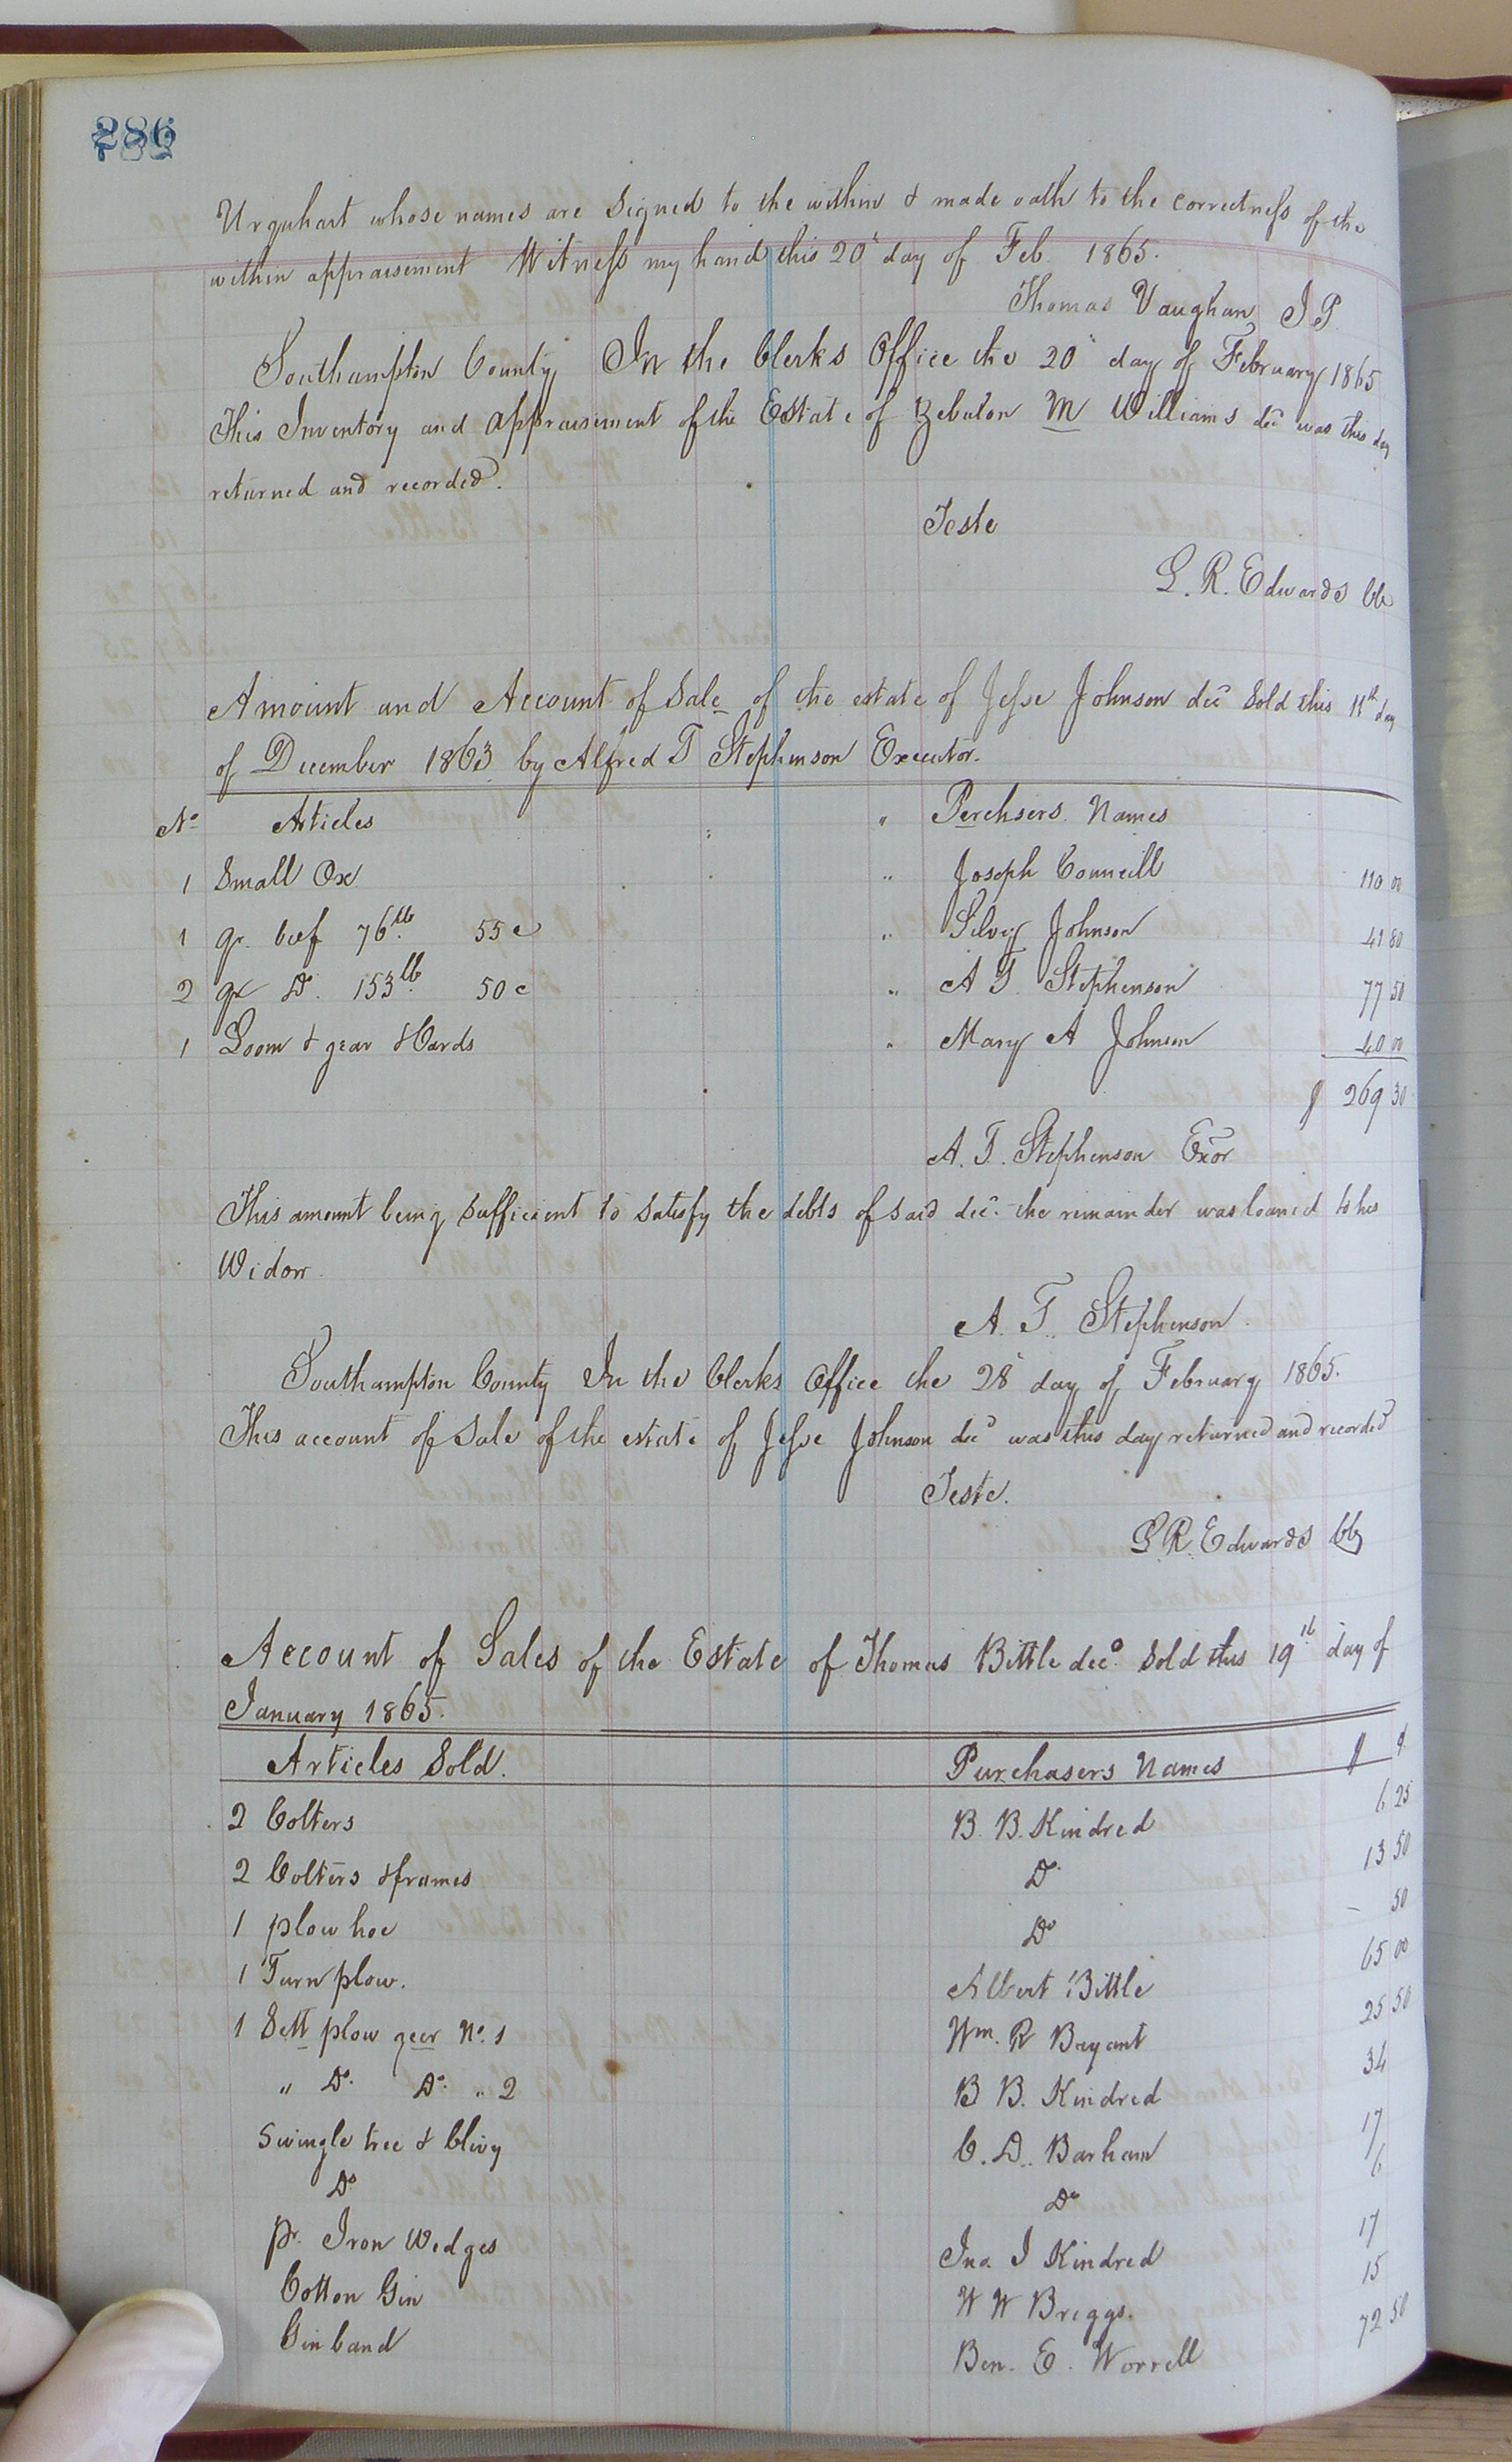 286
Urquhart whose names are signed to the within & made oath to the correctness of the
within appraisement Witness my hand this 20" day of Feb. 1865.
Thomas Vaughan J.P.
Southampton County In the Clerks Office the 20" day of February 1865
This Inventory and Appraisement of the Estate of Zebulon M Williams decd was this day
returned and recorded.
Teste
L. R. Edwards Clk
Amount and Account of Sale of the estate of Jesse Johnson decd Sold this 11th day
of December 1863 by Alfred T Stephenson Executor.
No Articles " Perchsers Names
1 Small Ox " Joseph Councill 110 00
1 qr. beef 76lb. 55c " Silvey Johnson 41 80
2 qr Do. 153lb. 50c " A T. Stephenson 77 50
1 Loom & gear & Cards " Mary A Johnson 40 00
$ 269 30
A. T. Stephenson Exor
This amount being sufficient to satisfy the debts of said decd. the remainder was loaned to his
Widow.
A. T. Stephenson.
Southampton County In the Clerks Office the 28" day of February 1865.
This account of Sale of the estate of Jesse Johnson decd was this day returned and recorded
Teste.
L R. Edwards Clk
Account of Sales of the Estate of Thomas Bittle decd. Sold this 19th day of
January 1865.
Articles Sold. Purchasers Names $ ¢
2 Colters B. B. Kindred 6 25
2 Colters & frames Do 13 50
1 plow hoe Do – 50
1 Turn plow. Albert Bittle 65 00
1 Sett plow geer No. 1 Wm. R Bryant 25 50
" Do. Do. " 2 B B. Kindred 34
Swingle tree & Clivy C. D. Barham 17
Do Do 6
Pr. Iron Wedges Jno. J Kindred 17
Cotton Gin W W Briggs. 15
Gin band Ben. E. Worrell 72 50